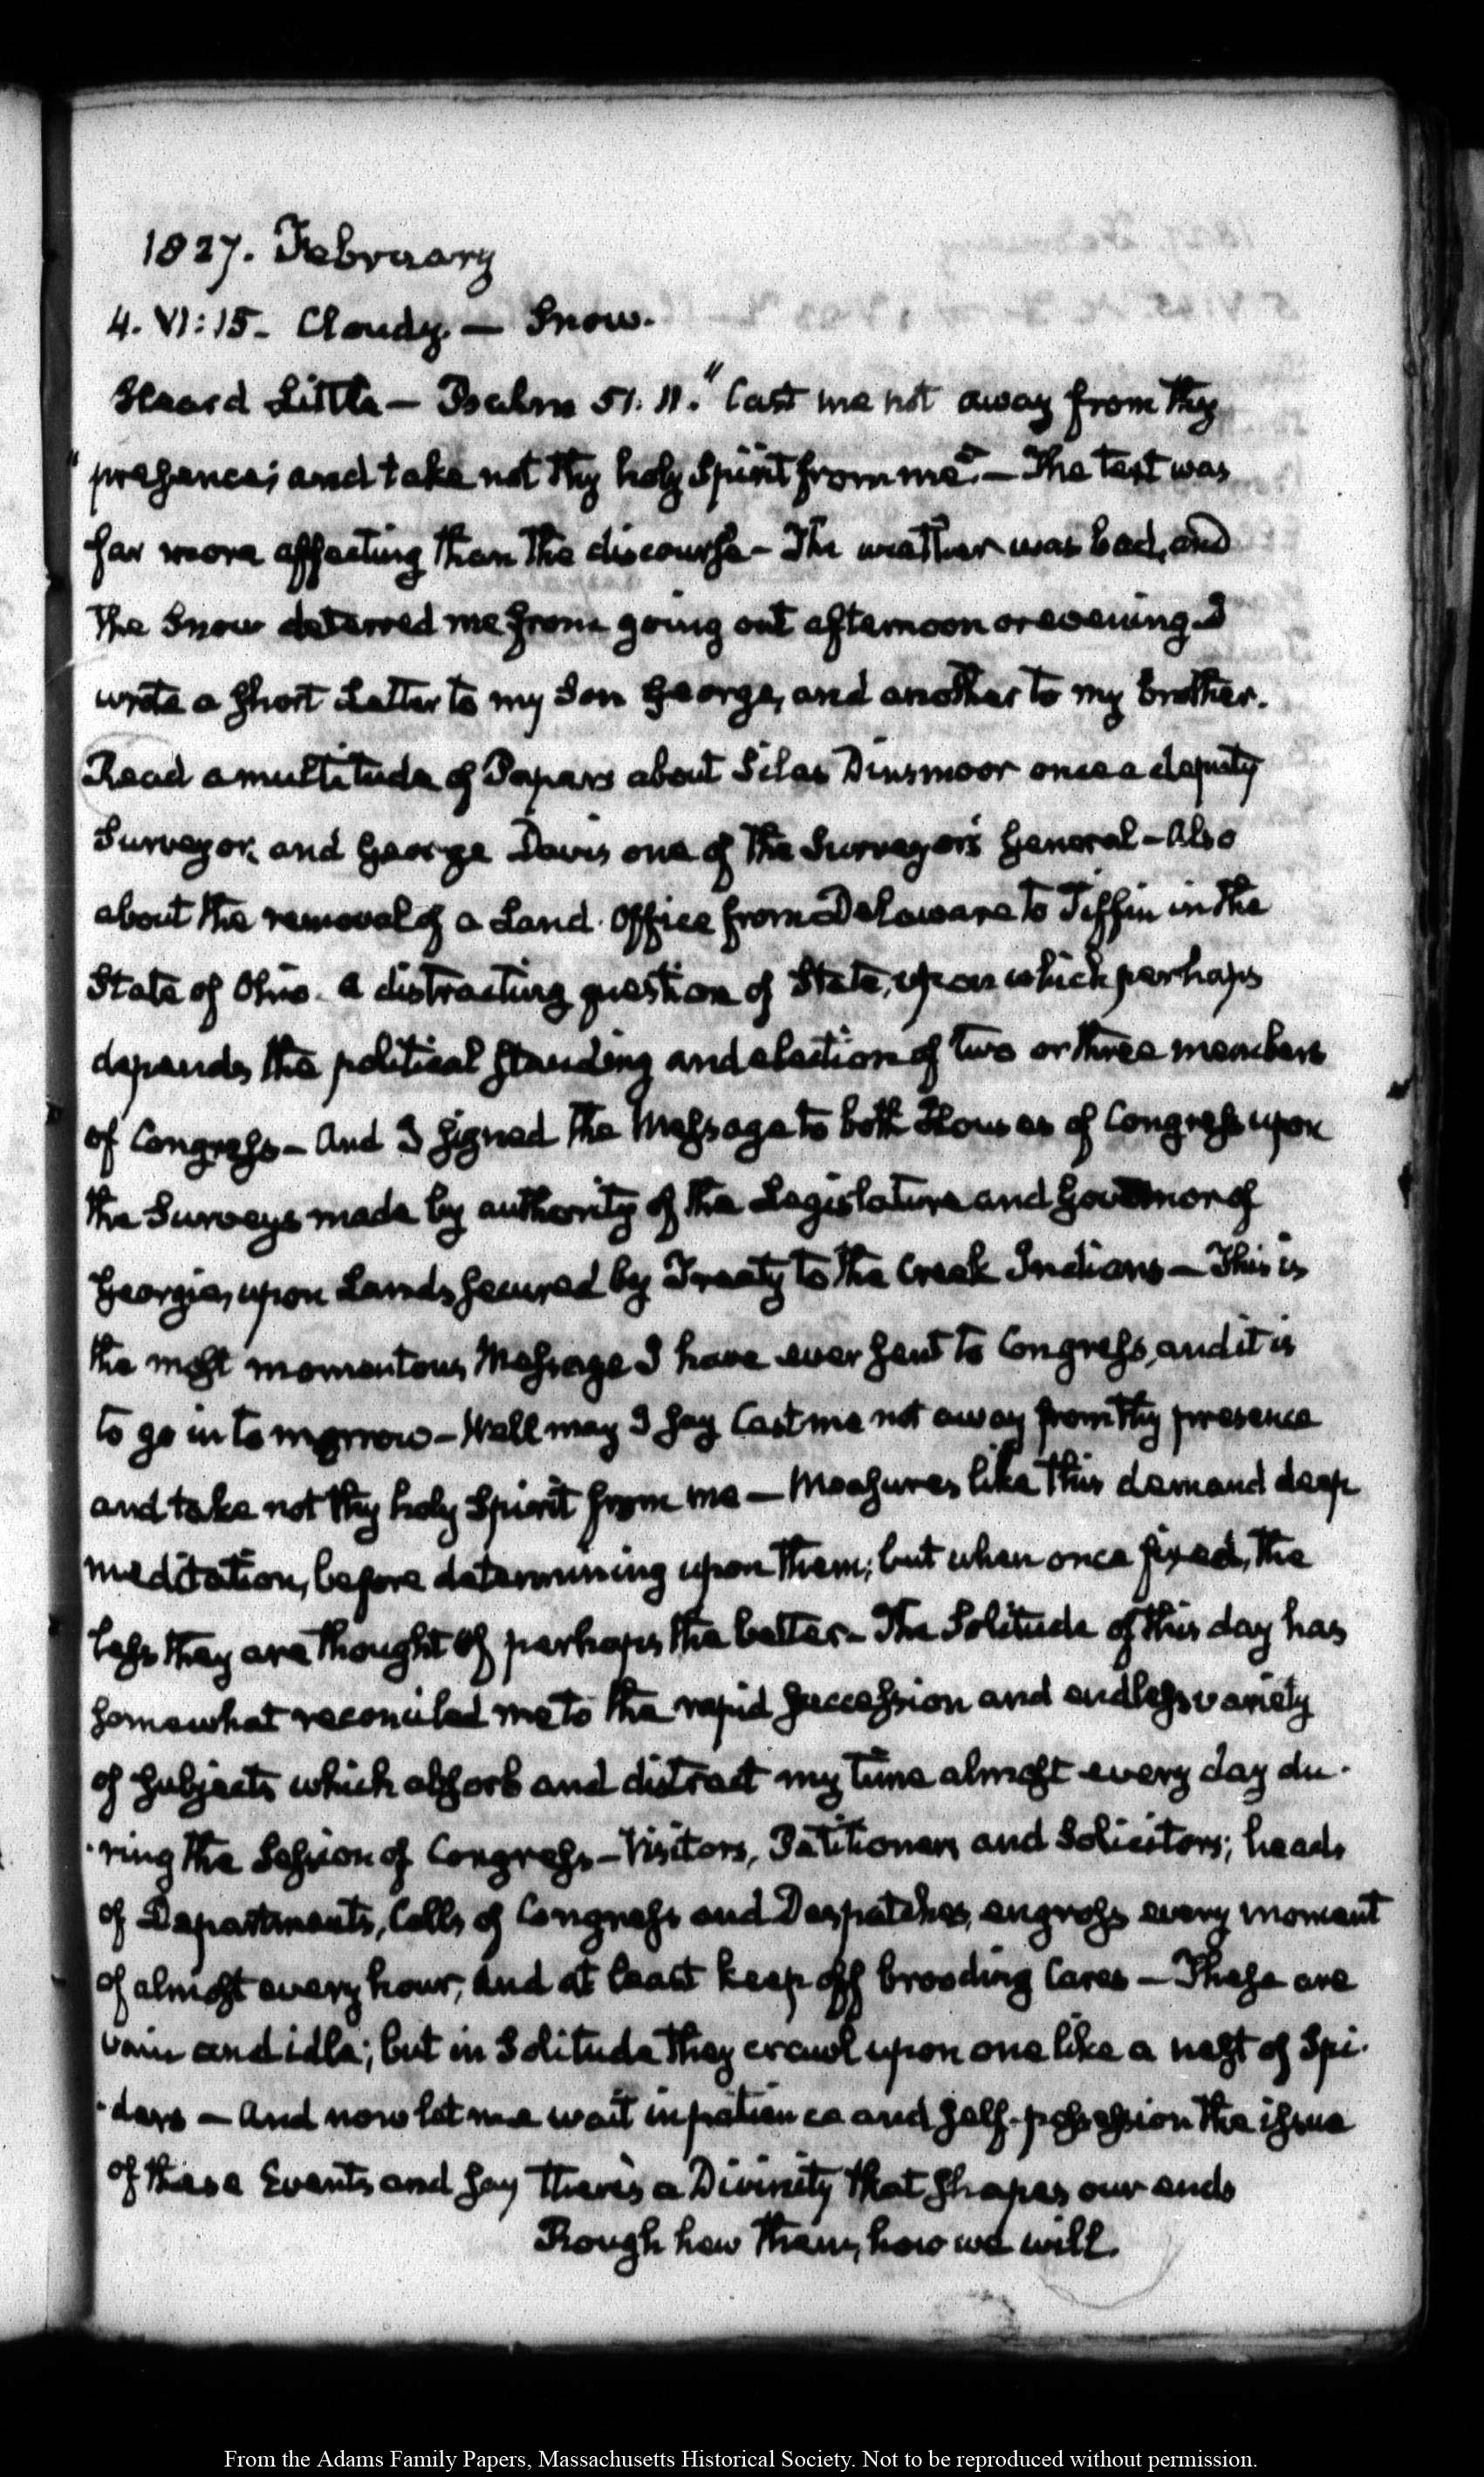 1827. February
4. VI:15. Cloudy. — Snow.
Heard Little — Psalm 51. 11. "Cast me not away from thy
"presence; and take not thy holy Spirit from me." — The text was
far more affecting than the discourse — The weather was bad, and
the Snow deterred me from going out afternoon or evening. I
wrote a short Letter to my Son George, and another to my brother.
Read a multitude of Papers about Silas Dinsmoor once a deputy
Surveyor, and George Davis one of the Surveyors General — Also
about the removal of a Land Office from Delaware to Tiffin in the
State of Ohio. A distracting question of State, upon which perhaps
depends the political standing and election of two or three members
of Congress — And I signed the Message to both Houses of Congress upon
the Surveys made by authority of the Legislature and Governor of
Georgia, upon Lands secured by Treaty to the Creek Indians — This is
the most momentous Message I have ever sent to Congress, and it is
to go in to morrow — Well may I say Cast me not away from thy presence
and take not thy holy Spirit from me — Measures like this demand deep
meditation, before determining upon them; but when once fixed, the
less they are thought of perhaps the better — The Solitude of this day has
somewhat reconciled me to the rapid succession and endless variety
of subjects which absorb and distract my time almost every day du-
-ring the Session of Congress — Visitors, Petitioners and Solicitors; heads
of Departments, Calls of Congress and Despatches, engross every moment
of almost every hour, and at least keep off brooding Cares — These are
vain and idle; but in Solitude they crawl upon one like a nest of Spi-
-ders — And now let me wait in patience and self-possession the issue
of these Events and say There's a Divinity that shapes our ends
Rough hew them, how we will.
From the Adams Family Papers, Massachusetts Historical Society. Not to be reproduced without permission.